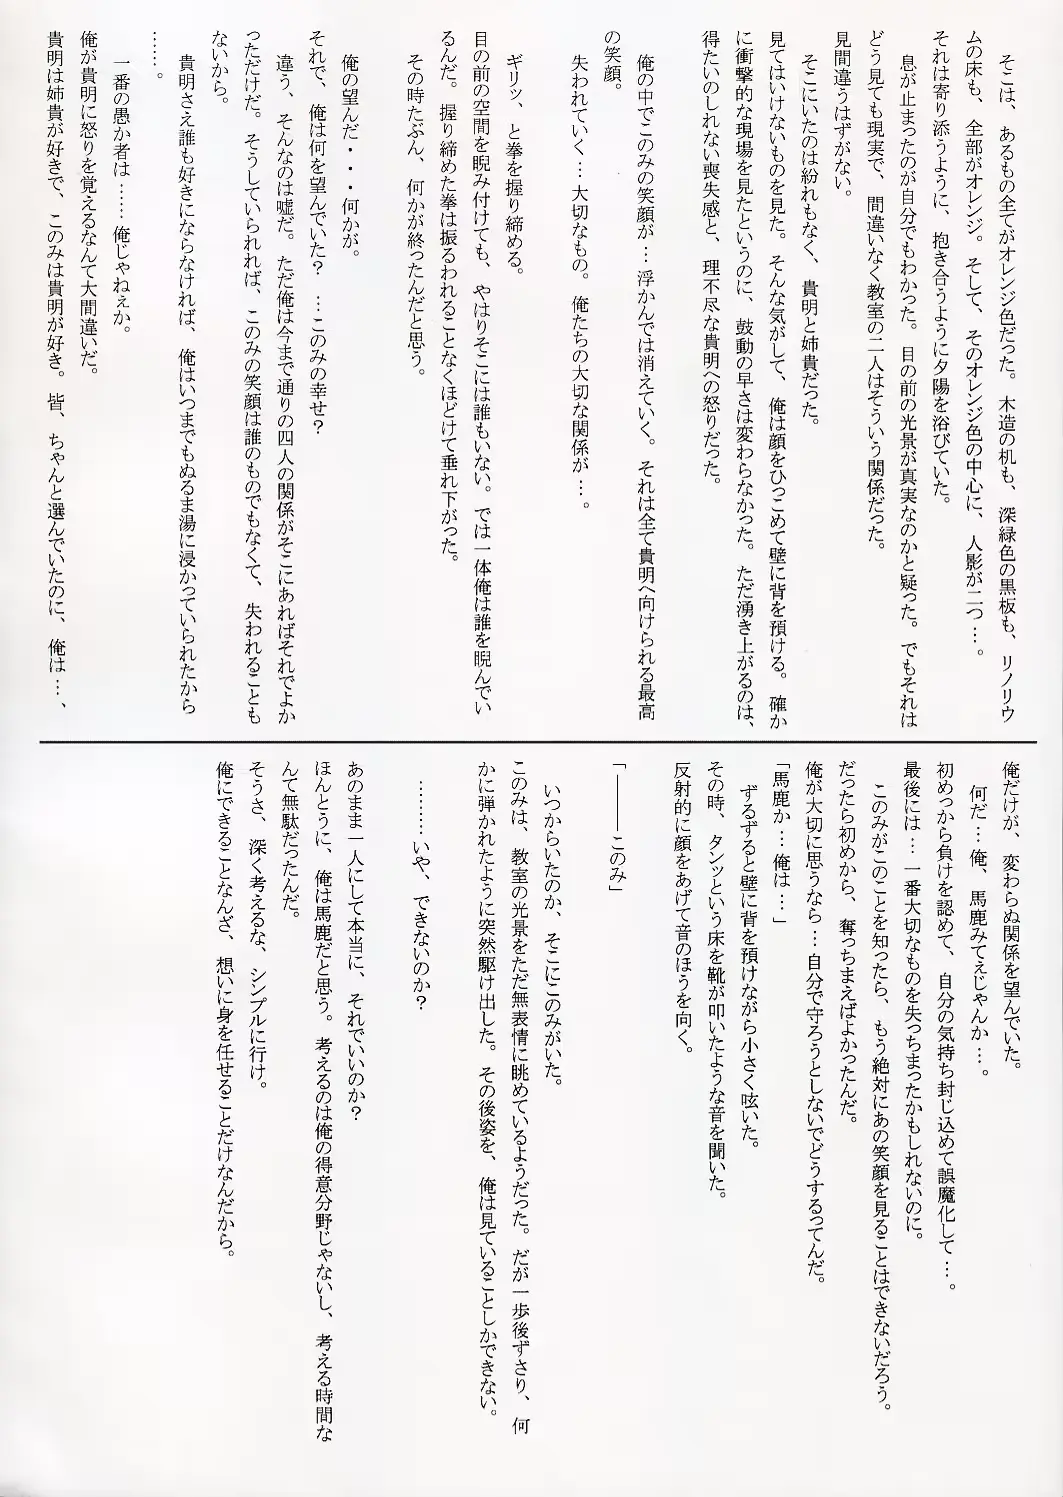 そこは、あるもの全てがオレンジ色だった。木造の机も、深緑色の黒板も、リノリウ
ムの床も、全部がオレンジ。そして、そのオレンジ色の中心に、人影が二つ…。
それは寄り添うように、抱き合うように夕陽を浴びていた。
息が止まったのが自分でもわかった。目の前の光景が真実なのかと疑った。でもそれは
どう見ても現実で、間違いなく教室の二人はそういう関係だった。
見間違うはずがない。
そこにいたのは紛れもなく、貴明と姉貴だった。
見てはいけないものを見た。そんな気がして、俺は顔をひっこめて壁に背を預ける。確か
に衝撃的な現場を見たというのに、鼓動の早さは変わらなかった。ただ湧き上がるのは、
得たいのしれない喪失感と、理不尽な貴明への怒りだった。
俺の中でこのみの笑顔が…浮かんでは消えていく。それは全て貴明へ向けられる最高
の笑顔。
失われていく…大切なもの。俺たちの大切な関係が…。
ギリッ、と拳を握り締める。
目の前の空間を睨み付けても、やはりそこには誰もいない。では一体俺は誰を睨んでい
るんだ。握り締めた拳は振るわれることなくほどけて垂れ下がった。
その時たぶん、何かが終ったんだと思う。
俺の望んだ・・・何かが。
それで、俺は何を望んでいた？…このみの幸せ？
違う、そんなのは嘘だ。ただ俺は今まで通りの四人の関係がそこにあればそれでよか
っただけだ。そうしていられれば、このみの笑顔は誰のものでもなくて、失われることも
ないから。
貴明さえ誰も好きにならなければ、俺はいつまでもぬるま湯に浸かっていられたから
……。
一番の愚か者は……俺じゃねぇか。
俺が貴明に怒りを覚えるなんて大間違いだ。
貴明は姉貴が好きで、このみは貴明が好き。皆、ちゃんと選んでいたのに、俺は…、
俺だけが、変わらぬ関係を望んでいた。
何だ…俺、馬鹿みてえじゃんか…。
初めっから負けを認めて、自分の気持ち封じ込めて誤魔化して…。
最後には…一番大切なものを失っちまったかもしれないのに。
このみがこのことを知ったら、もう絶対にあの笑顔を見ることはできないだろう。
だったら初めから、奪っちまえばよかったんだ。
俺が大切に思うなら…自分で守ろうとしないでどうするってんだ。
「馬鹿か…俺は…」
ずるずると壁に背を預けながら小さく呟いた。
その時、タンッという床を靴が叩いたような音を聞いた。
反射的に顔をあげて音のほうを向く。
「―――このみ」
いつからいたのか、そこにこのみがいた。
このみは、教室の光景をただ無表情に眺めているようだった。だが一歩後ずさり、何
かに弾かれたように突然駆け出した。その後姿を、俺は見ていることしかできない。
………いや、できないのか？
あのまま一人にして本当に、それでいいのか？
ほんとうに、俺は馬鹿だと思う。考えるのは俺の得意分野じゃないし、考える時間な
んて無駄だったんだ。
そうさ、深く考えるな、シンプルに行け。
俺にできることなんざ、想いに身を任せることだけなんだから。